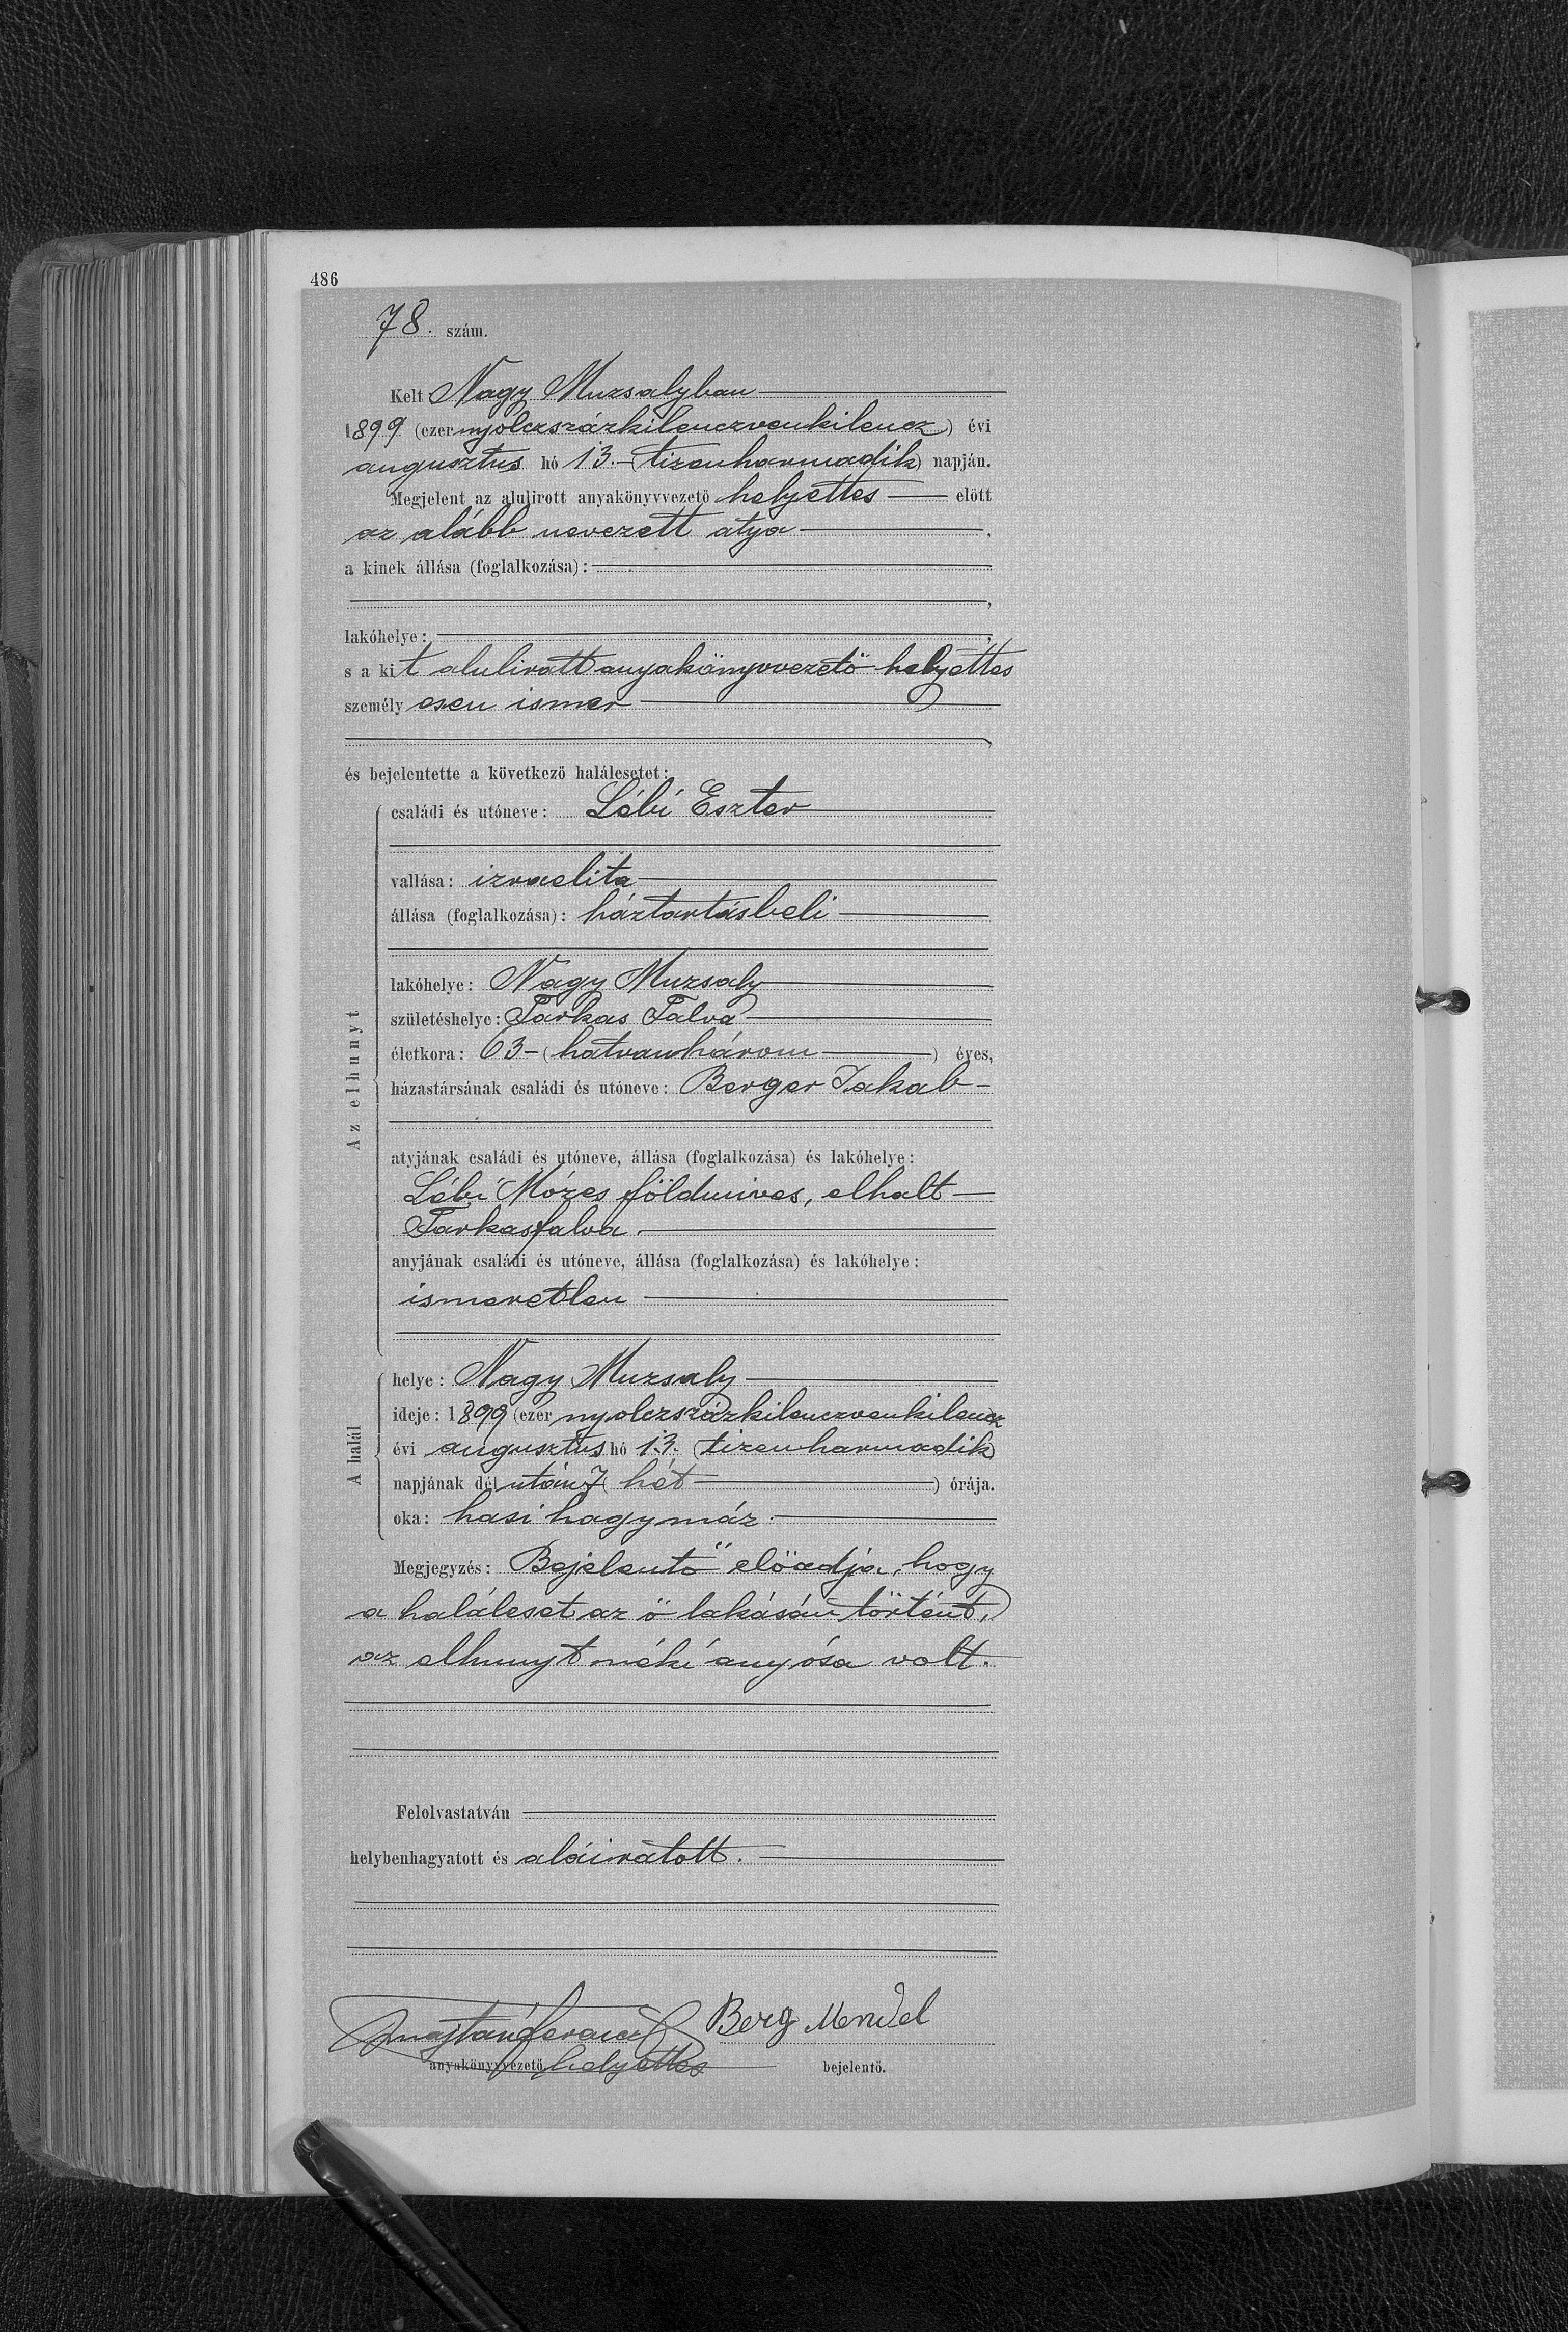 486
78. szám.
Kelt Nagy Muzsalyban
1899 (ezer nyolczszázkilenczvenkilencz) évi
augusztus hó 13. (tizenharmadik) napján.
Megjelent az alulirott anyakönyvvezető helyettes előtt
az alább nevezett atya,
a kinek állása (foglalkozása):
lakóhelye:
s a kit alulirott anyakönyvvezető helyettes
személyesen ismer
és bejelentette a következő halálesetet:
Az elhunyt
családi és utóneve: Lébi Eszter
vallása: izraelita
állása (foglalkozása): háztartásbeli
lakóhelye: Nagy Muzsaly
születéshelye: Farkas Falva
életkora: 63 (hatvanhárom) éves,
házastársának családi és utóneve: Berger Jakab
atyjának családi és utóneve, állása (foglalkozása) és lakóhelye:
Lébi Mózes földmives, elhalt
Farkasfalva.
anyjának családi és utóneve, állása (foglalkozása) és lakóhelye:
ismeretlen
A halál
helye: Nagy Muzsaly
ideje: 1899 (ezer nyolczszázkilenczvenkilencz
évi augusztus hó 13. (tizenharmadik)
napjának délután 7 (hét) órája.
oka: hasi hagymáz.
Megjegyzés: Bejelentő előadja, hogy
a haláleset az ő lakásán történt,
az elhunyt néki anyósa volt.
Felolvastatván
helybenhagyatott és aláiratott.
Berg Mendel
anyakönyvvezető helyettes bejelentő.